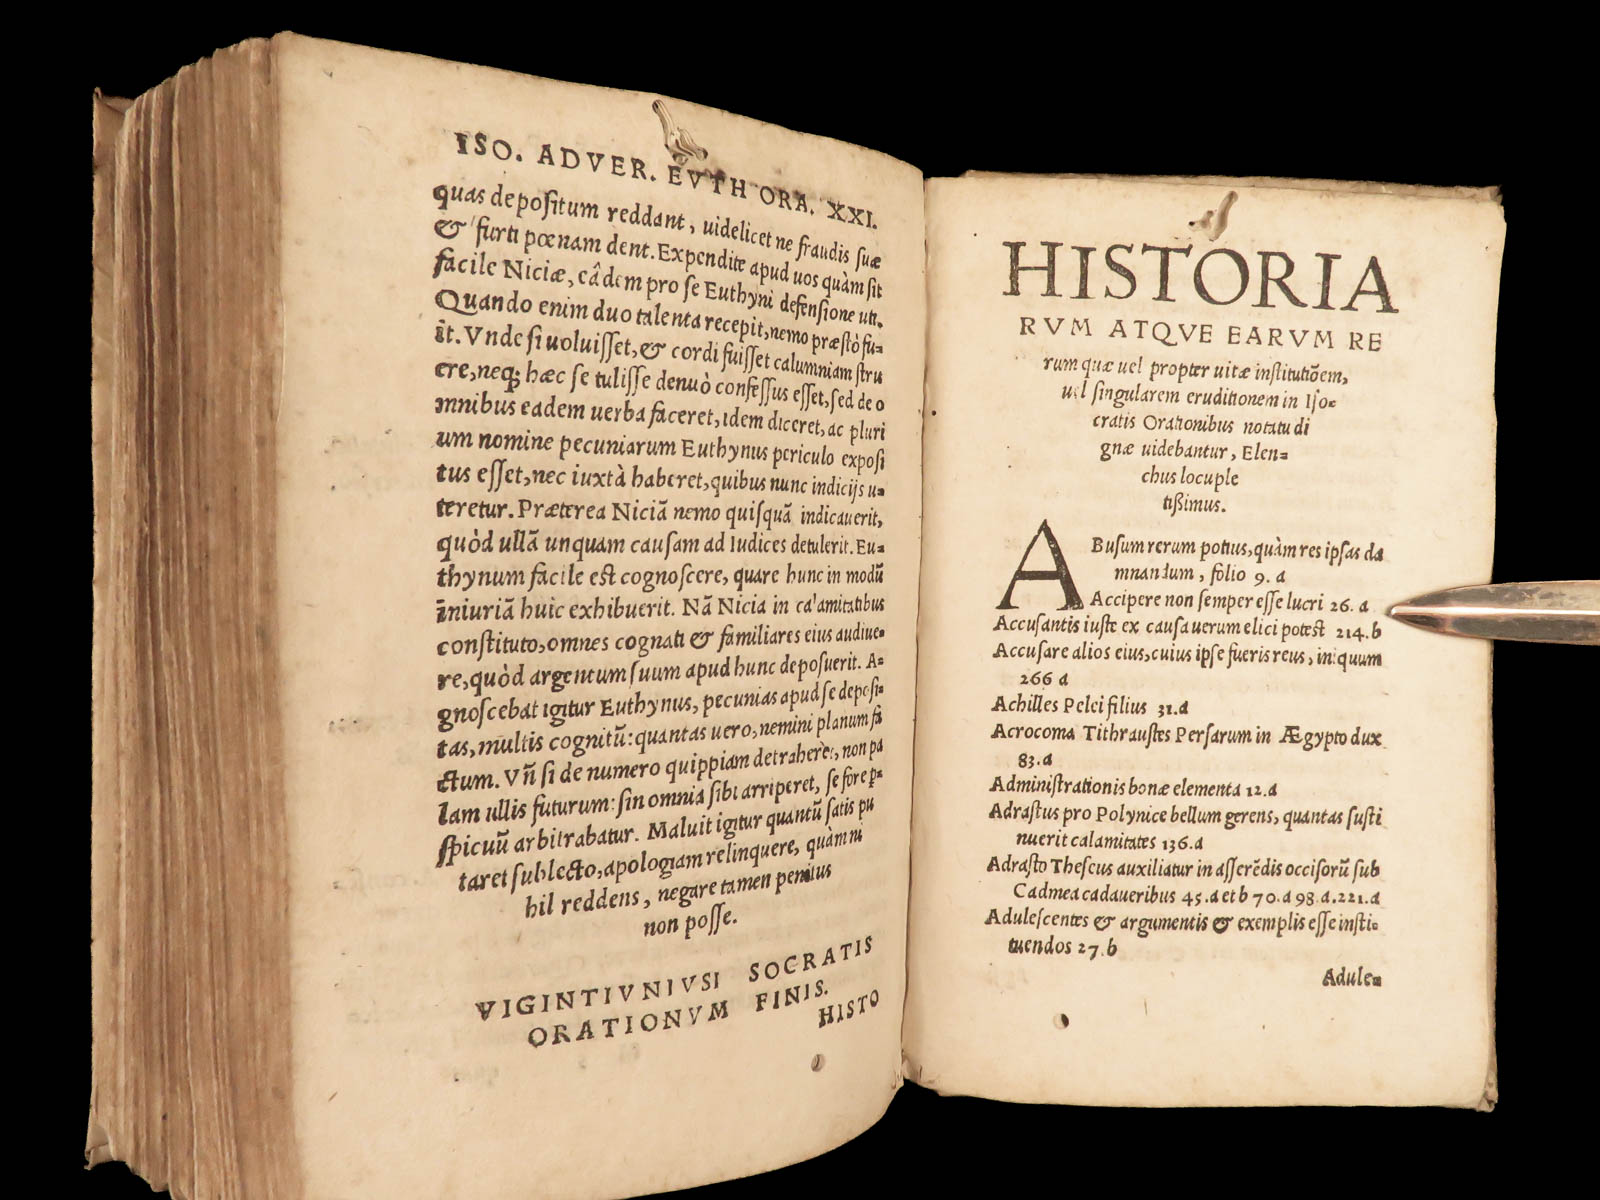 ISO. ADVER. EVTH ORA. XXI.
quas depositum reddant, uidelicet ne fraudis suæ
& furti pœnam dent. Expendite apud uos quàm sit
facile Niciæ, eâdem pro se Euthyni defensione uti.
Quando enim duo talenta recepit, nemo præstò fu-
it. Vnde si uoluisset, & cordi fuisset calumniam stru
ere, neq; hæc se tulisse denuò confessus esset, sed de o
mnibus eadem uerba faceret, idem diceret, ac pluri
um nomine pecuniarum Euthynus periculo exposi
tus esset, nec iuxtà haberet, quibus nunc indicijs u-
teretur. Præterea Niciā nemo quisquā indicauerit,
quòd ullā unquam causam ad Iudices detulerit. Eu-
thynum facile est cognoscere, quare hunc in modū
iniuriā huic exhibuerit. Nā Nicia in calamitatibus
constituto, omnes cognati & familiares eius audiue-
re, quòd argentum suum apud hunc deposuerit. A-
gnoscebat igitur Euthynus, pecunias apud se deposi-
tas, multis cognitū: quantas uero, nemini planum fa
ctum. Vñ si de numero quippiam detraheret, non pa
lam ullis futurum: sin omnia sibi arriperet, se fore p-
spicuū arbitrabatur. Maluit igitur quantū satis pu
taret sublecto, apologiam relinquere, quàm ni
hil reddens, negare tamen penitus
non posse.
VIGINTIVNIVSI SOCRATIS
ORATIONVM FINIS.
HISTO
HISTORIA
RVM ATQVE EARVM RE
rum quæ uel propter uitæ institutiōem,
uel singularem eruditionem in Iso-
cratis Orationibus notatu di
gnæ uidebantur, Elen-
chus locuple
tißimus.
ABusum rerum potius, quàm res ipsas da
mnandum, folio 9. a
Accipere non semper esse lucri 26. a
Accusantis iuste ex causa uerum elici potest 214. b
Accusare alios eius, cuius ipse fueris reus, iniquum
266 a
Achilles Pelei filius 31. a
Acrocoma Tithraustes Persarum in Ægypto dux
83. a
Administrationis bonæ elementa 12. a
Adrastus pro Polynice bellum gerens, quantas susti
nuerit calamitates 136. a
Adrasto Theseus auxiliatur in asserēdis occisorū sub
Cadmea cadaueribus 45. a et b 70. a 98. a. 221. a
Adulescentes & argumentis & exemplis esse insti-
tuendos 27. b
Adule-